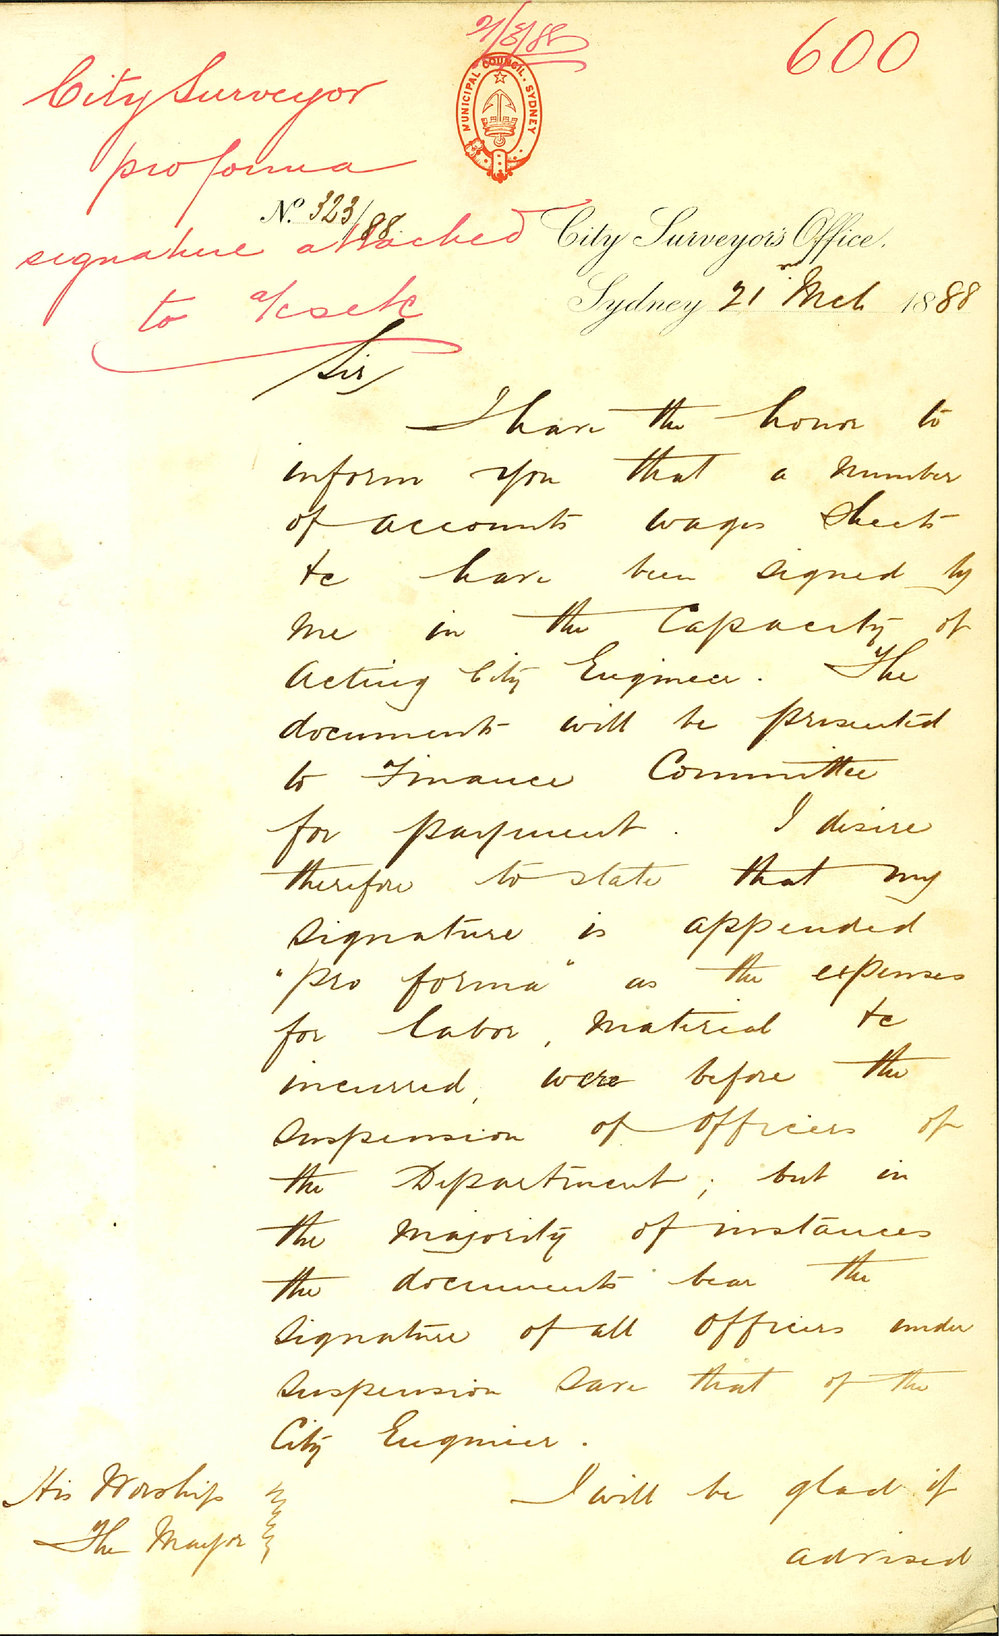 21/3/88
600
City Surveyor
pro forma
signature attached
to a/cs etc
MUNICIPAL COUNCIL. SYDNEY
No. 323/88
City Surveyor's Office,
Sydney 21 Mch 1888
Sir
I have the honor to
inform you that a number
of accounts wages sheets
&c have been signed by
me in the capacity of
Acting City Engineer. The
documents will be presented
to Finance Committee
for payment. I desire
therefore to state that my
signature is appended
"pro forma" as the expenses
for labor, material &c
incurred, were before the
suspension of Officers of
the Department; but in
the majority of instances
the documents bear the
signature of all Officers under
suspension save that of the
City Engineer.
I will be glad if
advised
His Worship
The Mayor